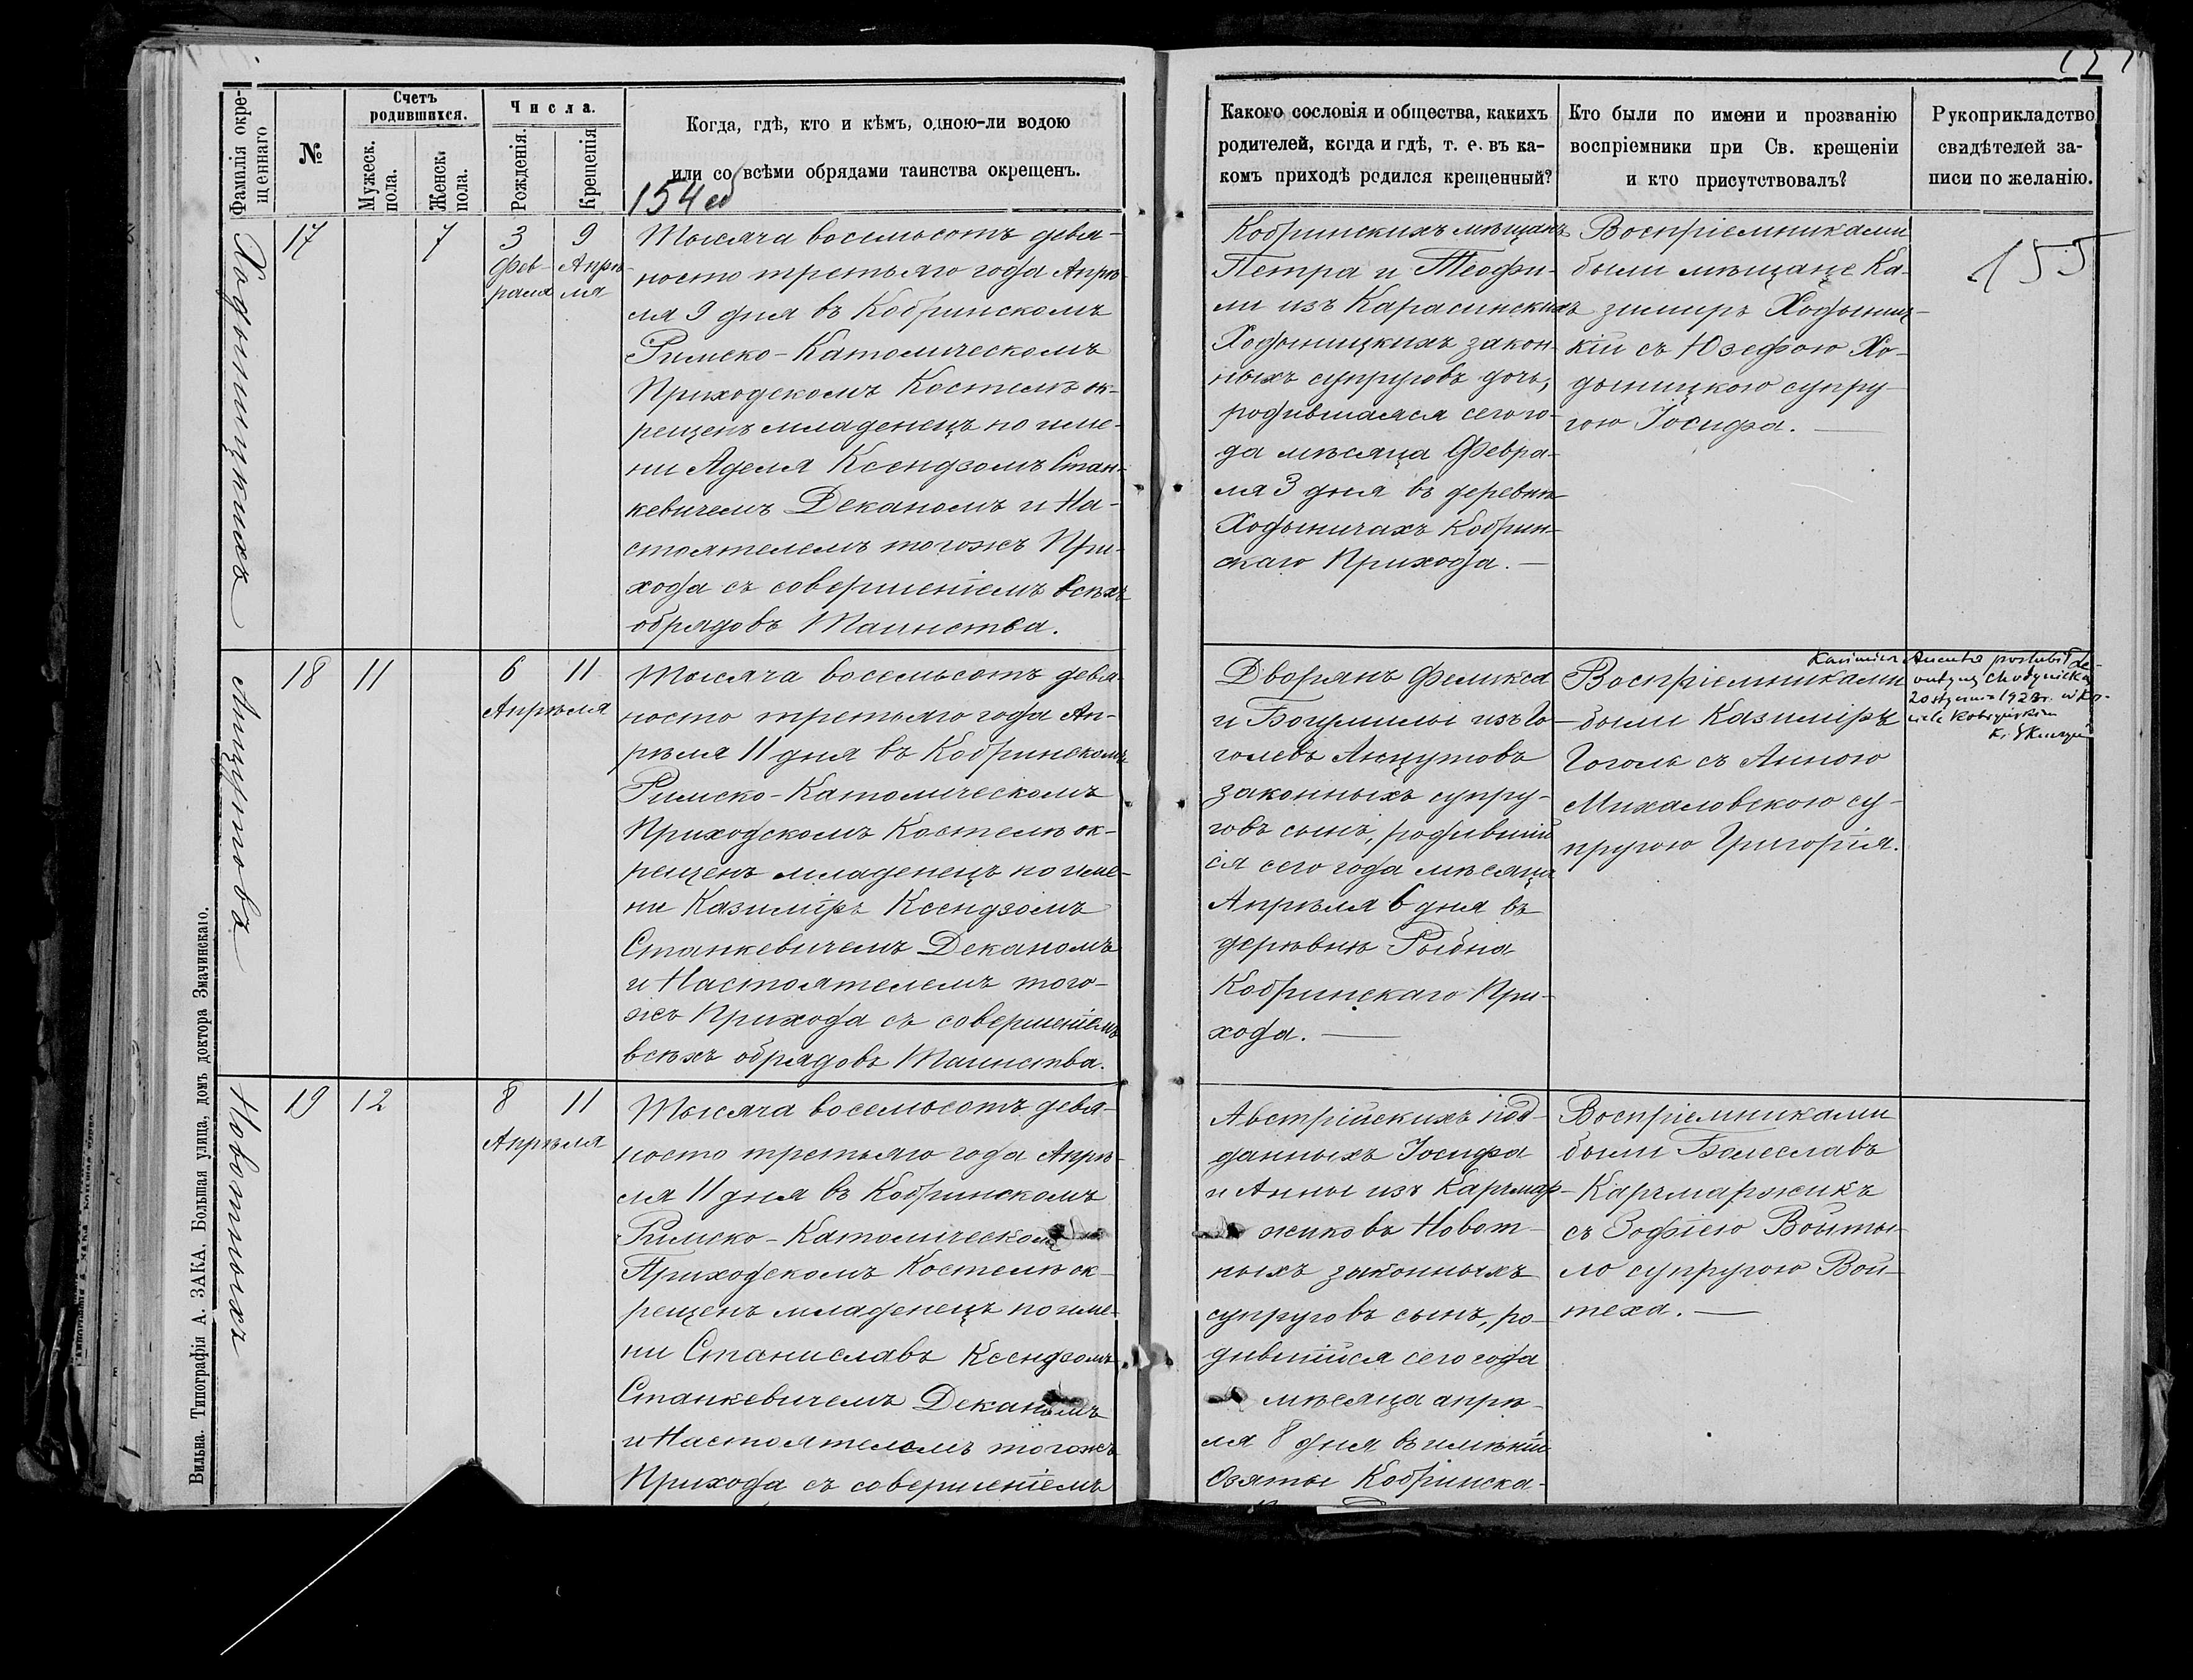 Фамилія окре-
щеннаго
№
Счетъ
родившихся.
Мужеск.
пола.
Женск.
пола.
Числа.
Рожденія.
Крещенія
Когда, гдѣ, кто и кѣмъ, одною-ли водою
или со всѣми обрядами таинства окрещенъ.
154 об
Ходыницкихъ
17
7
3
Фев-
раля
9
Апрѣ-
ля
Тысяча восемьсотъ девя-
носто третьяго года Апрѣ-
ля 9 дня въ Кобринскомъ
Римско-Католическомъ
Приходскомъ Костелѣ ок-
рещенъ младенецъ по име-
ни Аделя Ксендзомъ Стан-
кевичемъ Деканомъ и На-
стоятелемъ тогожъ При-
хода съ совершеніемъ всѣхъ
обрядовъ Таинства.
Анцутовъ
18
11
6
11
Апрѣля
Тысяча восемьсотъ девя-
носто третьяго года Ап-
рѣля 11 дня въ Кобринскомъ
Римско-Католическомъ
Приходскомъ Костелѣ ок-
рещенъ младенецъ по име-
ни Казиміръ Ксендзомъ
Станкевичемъ Деканомъ
и Настоятелемъ того-
жъ Прихода съ совершеніемъ
всѣхъ обрядовъ Таинства.
Новотныхъ
19
12
8
11
Апрѣля
Тысяча восемьсотъ девя-
носто третьяго года Апрѣ-
ля 11 дня въ Кобринскомъ
Римско-Католическомъ
Приходскомъ Костелѣ ок-
рещенъ младенецъ по име-
ни Станиславъ Ксендзомъ
Станкевичемъ Деканомъ
и Настоятелемъ тогожъ
Прихода съ совершеніемъ
Вильна. Типографія А. ЗАКА, Большая улица, домъ доктора Змачинскаго.
Какого сословія и общества, какихъ
родителей, когда и гдѣ, т. е. въ ка-
комъ приходѣ родился крещенный?
Кто были по имени и прозванію
воспріемники при Св. крещеніи
и кто присутствовалъ?
Рукоприкладство
свидѣтелей за-
писи по желанію.
155
Кобринскихъ мѣщанъ
Петра и Теофи-
ли изъ Карасинскихъ
Ходыницкихъ закон-
ныхъ супруговъ дочь,
родившаяся сего го-
да мѣсяца Февра-
ля 3 дня въ деревнѣ
Ходыничахъ Кобрин-
скаго Прихода.
Воспріемниками
были мѣщане Ка-
зимиръ Ходыниц-
кій съ Юзефою Хо-
дыницкою супру-
гою Іосифа.
Дворянъ Феликса
и Богумилы изъ Го-
голевъ Анцутовъ
законныхъ супру-
говъ сынъ, родившій-
ся сего года мѣсяца
Апрѣля 6 дня въ
дерѣвнѣ Рыбна
Кобринскаго При-
хода.
Воспріемниками
были Казиміръ
Гоголь съ Анною
Михаловскою су-
пругою Григорія.
Kazimierz Ancuta poślubił Le-
ontynę Chodynicką
20 stycznia 192 r. w Ko-
ściele Kobryńskim
Австрійскихъ под-
данныхъ Іосифа
и Анны изъ Карчмар-
жиковъ Новот-
ныхъ законныхъ
супруговъ сынъ, ро-
дившійся сего года
мѣсяца апрѣ-
ля 8 дня въ имѣніи
Озяты Кобринска-
Воспріемниками
были Болеславъ
Карчмаржикъ
съ Зофіею Войты-
ло супругою Вой-
теха.